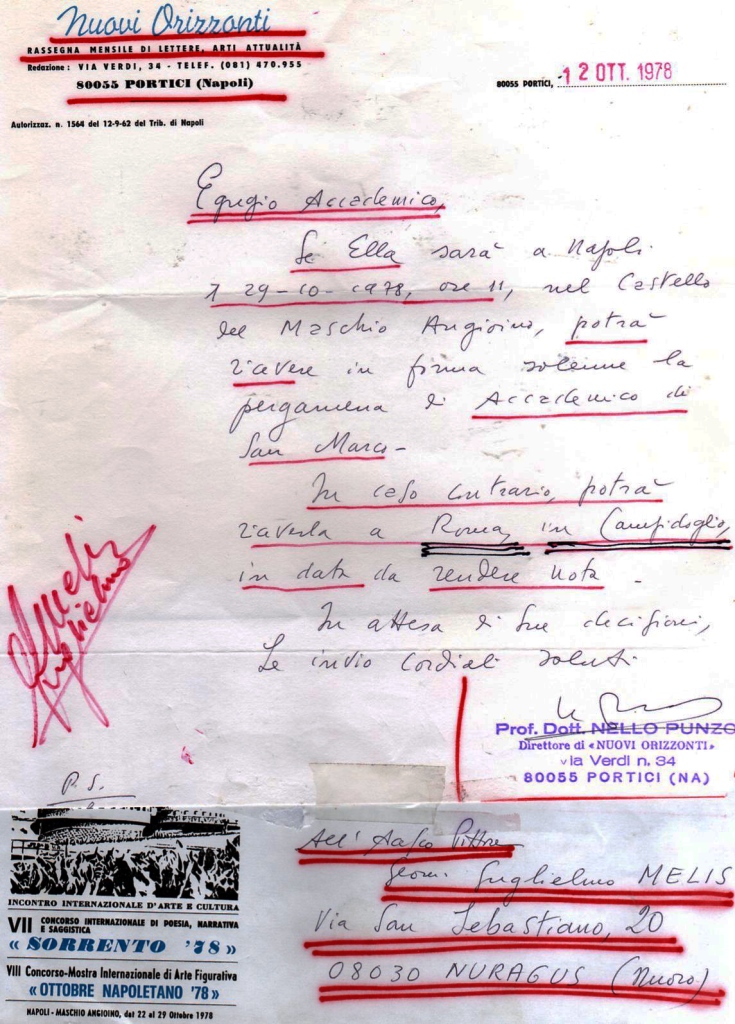 Nuovi Orizzonti
RASSEGNA MENSILE DI LETTERE, ARTI ATTUALITÀ
Redazione: VIA VERDI, 34 - TELEF. (081) 470.955
80055 PORTICI (Napoli)
80055 PORTICI, -1 2 OTT. 1978
Autorizzaz. n. 1564 del 12-9-62 del Trib. di Napoli
Egregio Accademico,
Se Ella sarà a Napoli
29-10-1978, ore 11, nel Castello
del Maschio Angioino, potrà
ricevere in forma solenne la
pergamena di Accademico di
San Marco-
In caso contrario, potrà
riaverla a Roma, in Campidoglio,
in data da rendere nota.
In attesa di Sue decisioni,
Le invio cordiali saluti
Melis
Guglielmo
Prof. Dott. NELLO PUNZO
Direttore di «NUOVI ORIZZONTI»
via Verdi n. 34
80055 PORTICI (NA)
P.S.
INCONTRO INTERNAZIONALE D'ARTE E CULTURA
VII CONCORSO INTERNAZIONALE DI POESIA, NARRATIVA
E SAGGISTICA
« SORRENTO '78 »
VIII Concorso-Mostra Internazionale di Arte Figurativa
« OTTOBRE NAPOLETANO '78 »
NAPOLI - MASCHIO ANGIOINO, dal 22 al 29 Ottobre 1978
All' Pittore
Geom. Guglielmo MELIS
Via San Sebastiano, 20
08030 NURAGUS (Nuoro)